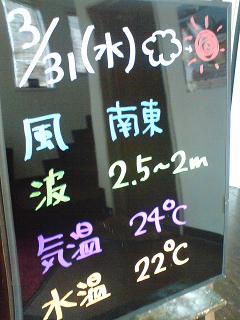 3/31(水)
風 南東
波 2.5~2m
気温 24℃
水温 22℃